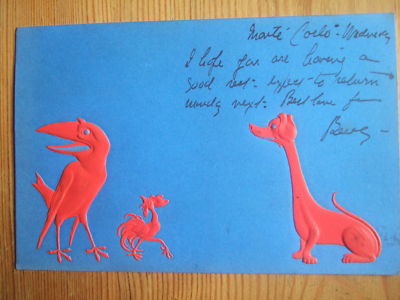 Monte Carlo - Wednesday
I hope you are having a
good rest - expect to return
monday next - Best love from